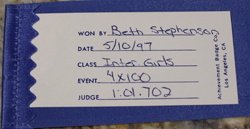 WON BY Beth Stephenson
DATE 5/10/97
CLASS Inter Girls
EVENT 4x100
JUDGE 1:01.702
Achievement Badge Co.
Los Angeles, CA